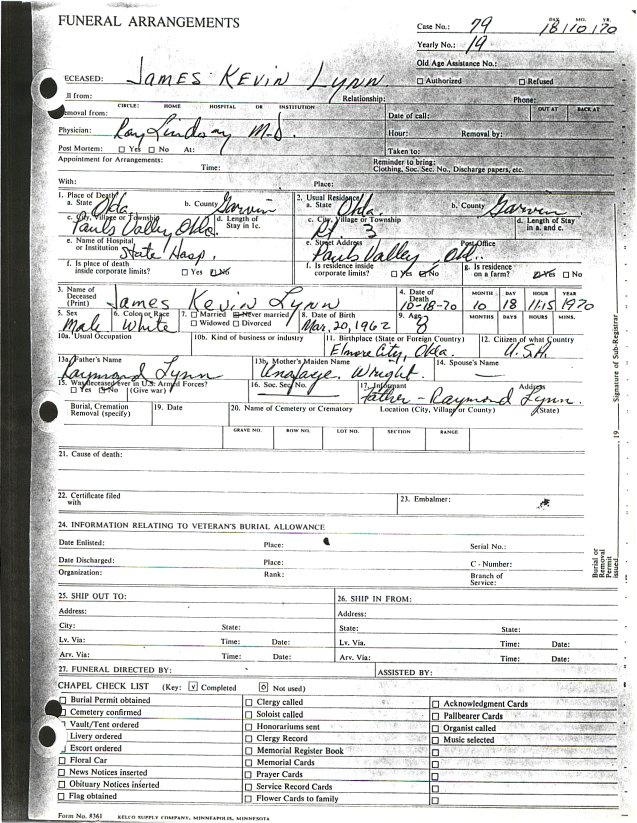 FUNERAL ARRANGEMENTS
Case No.: 79 DAY MO. YR. 18 10 70
Yearly No.: 19
Old Age Assistance No.:
☐ Authorized ☐ Refused
ECEASED: JAMES KEVIN LYNN
ll from: Relationship: Phone:
CIRCLE: HOME HOSPITAL OR INSTITUTION
emoval from: Date of call: OUT AT BACK AT
Physician: Ray Lindsay M-D. Hour: Removal by:
Post Mortem: ☐ Yes ☐ No At: Taken to:
Appointment for Arrangements: Time: Reminder to bring:
Clothing, Soc. Sec. No., Discharge papers, etc.
With: Place:
1. Place of Death 2. Usual Residence
a. State Okla b. County Garvin a. State Okla b. County Garvin
c. City, Village or Township Pauls Valley, Okla. d. Length of Stay in 1c. c. City, Village or Township Rt. 3 d. Length of Stay in a. and c.
e. Name of Hospital or Institution State Hosp. e. Street Address Pauls Valley, Okl. Post Office
f. Is place of death inside corporate limits? ☐ Yes ☐ No f. Is residence inside corporate limits? ☐ Yes ☐ No g. Is residence on a farm? ☐ Yes ☐ No
3. Name of Deceased (Print) James Kevin Lynn 4. Date of Death 10-18-70 MONTH 10 DAY 18 HOUR 11:15 YEAR 1970
5. Sex Male 6. Color or Race White 7. ☐ Married ☐ Never married ☐ Widowed ☐ Divorced 8. Date of Birth Mar. 20, 1962 9. Age 8 MONTHS DAYS HOURS MINS.
10a. Usual Occupation 10b. Kind of business or industry 11. Birthplace (State or Foreign Country) Elmore City, Okla. 12. Citizen of what Country U.S.A.
13a. Father's Name Raymond Lynn 13b. Mother's Maiden Name Wright 14. Spouse's Name —
15. Was deceased ever in U.S. Armed Forces? ☐ Yes ☐ No (Give war) 16. Soc. Sec. No. 17. Informant Father - Raymond Lynn. Address
Burial, Cremation Removal (specify) 19. Date 20. Name of Cemetery or Crematory Location (City, Village or County) (State)
GRAVE NO. ROW NO. LOT NO. SECTION RANGE
21. Cause of death:
22. Certificate filed with 23. Embalmer:
24. INFORMATION RELATING TO VETERAN'S BURIAL ALLOWANCE
Date Enlisted: Place: Serial No.:
Date Discharged: Place: C - Number:
Organization: Rank: Branch of Service:
25. SHIP OUT TO: 26. SHIP IN FROM:
Address: Address:
City: State: State: State:
Lv. Via: Time: Date: Lv. Via. Time: Date:
Arv. Via: Time: Date: Arv. Via: Time: Date:
27. FUNERAL DIRECTED BY: ASSISTED BY:
CHAPEL CHECK LIST (Key: ☑ Completed ⊡ Not used)
☐ Burial Permit obtained ☐ Clergy called ☐ Acknowledgment Cards
☐ Cemetery confirmed ☐ Soloist called ☐ Pallbearer Cards
Vault/Tent ordered ☐ Honorariums sent ☐ Organist called
Livery ordered ☐ Clergy Record ☐ Music selected
Escort ordered ☐ Memorial Register Book ☐
☐ Floral Car ☐ Memorial Cards ☐
☐ News Notices inserted ☐ Prayer Cards ☐
☐ Obituary Notices inserted ☐ Service Record Cards ☐
☐ Flag obtained ☐ Flower Cards to family ☐
Form No. 8361 KELCO SUPPLY COMPANY, MINNEAPOLIS, MINNESOTA
Burial or Removal Permit issued , 19 Signature of Sub-Registrar